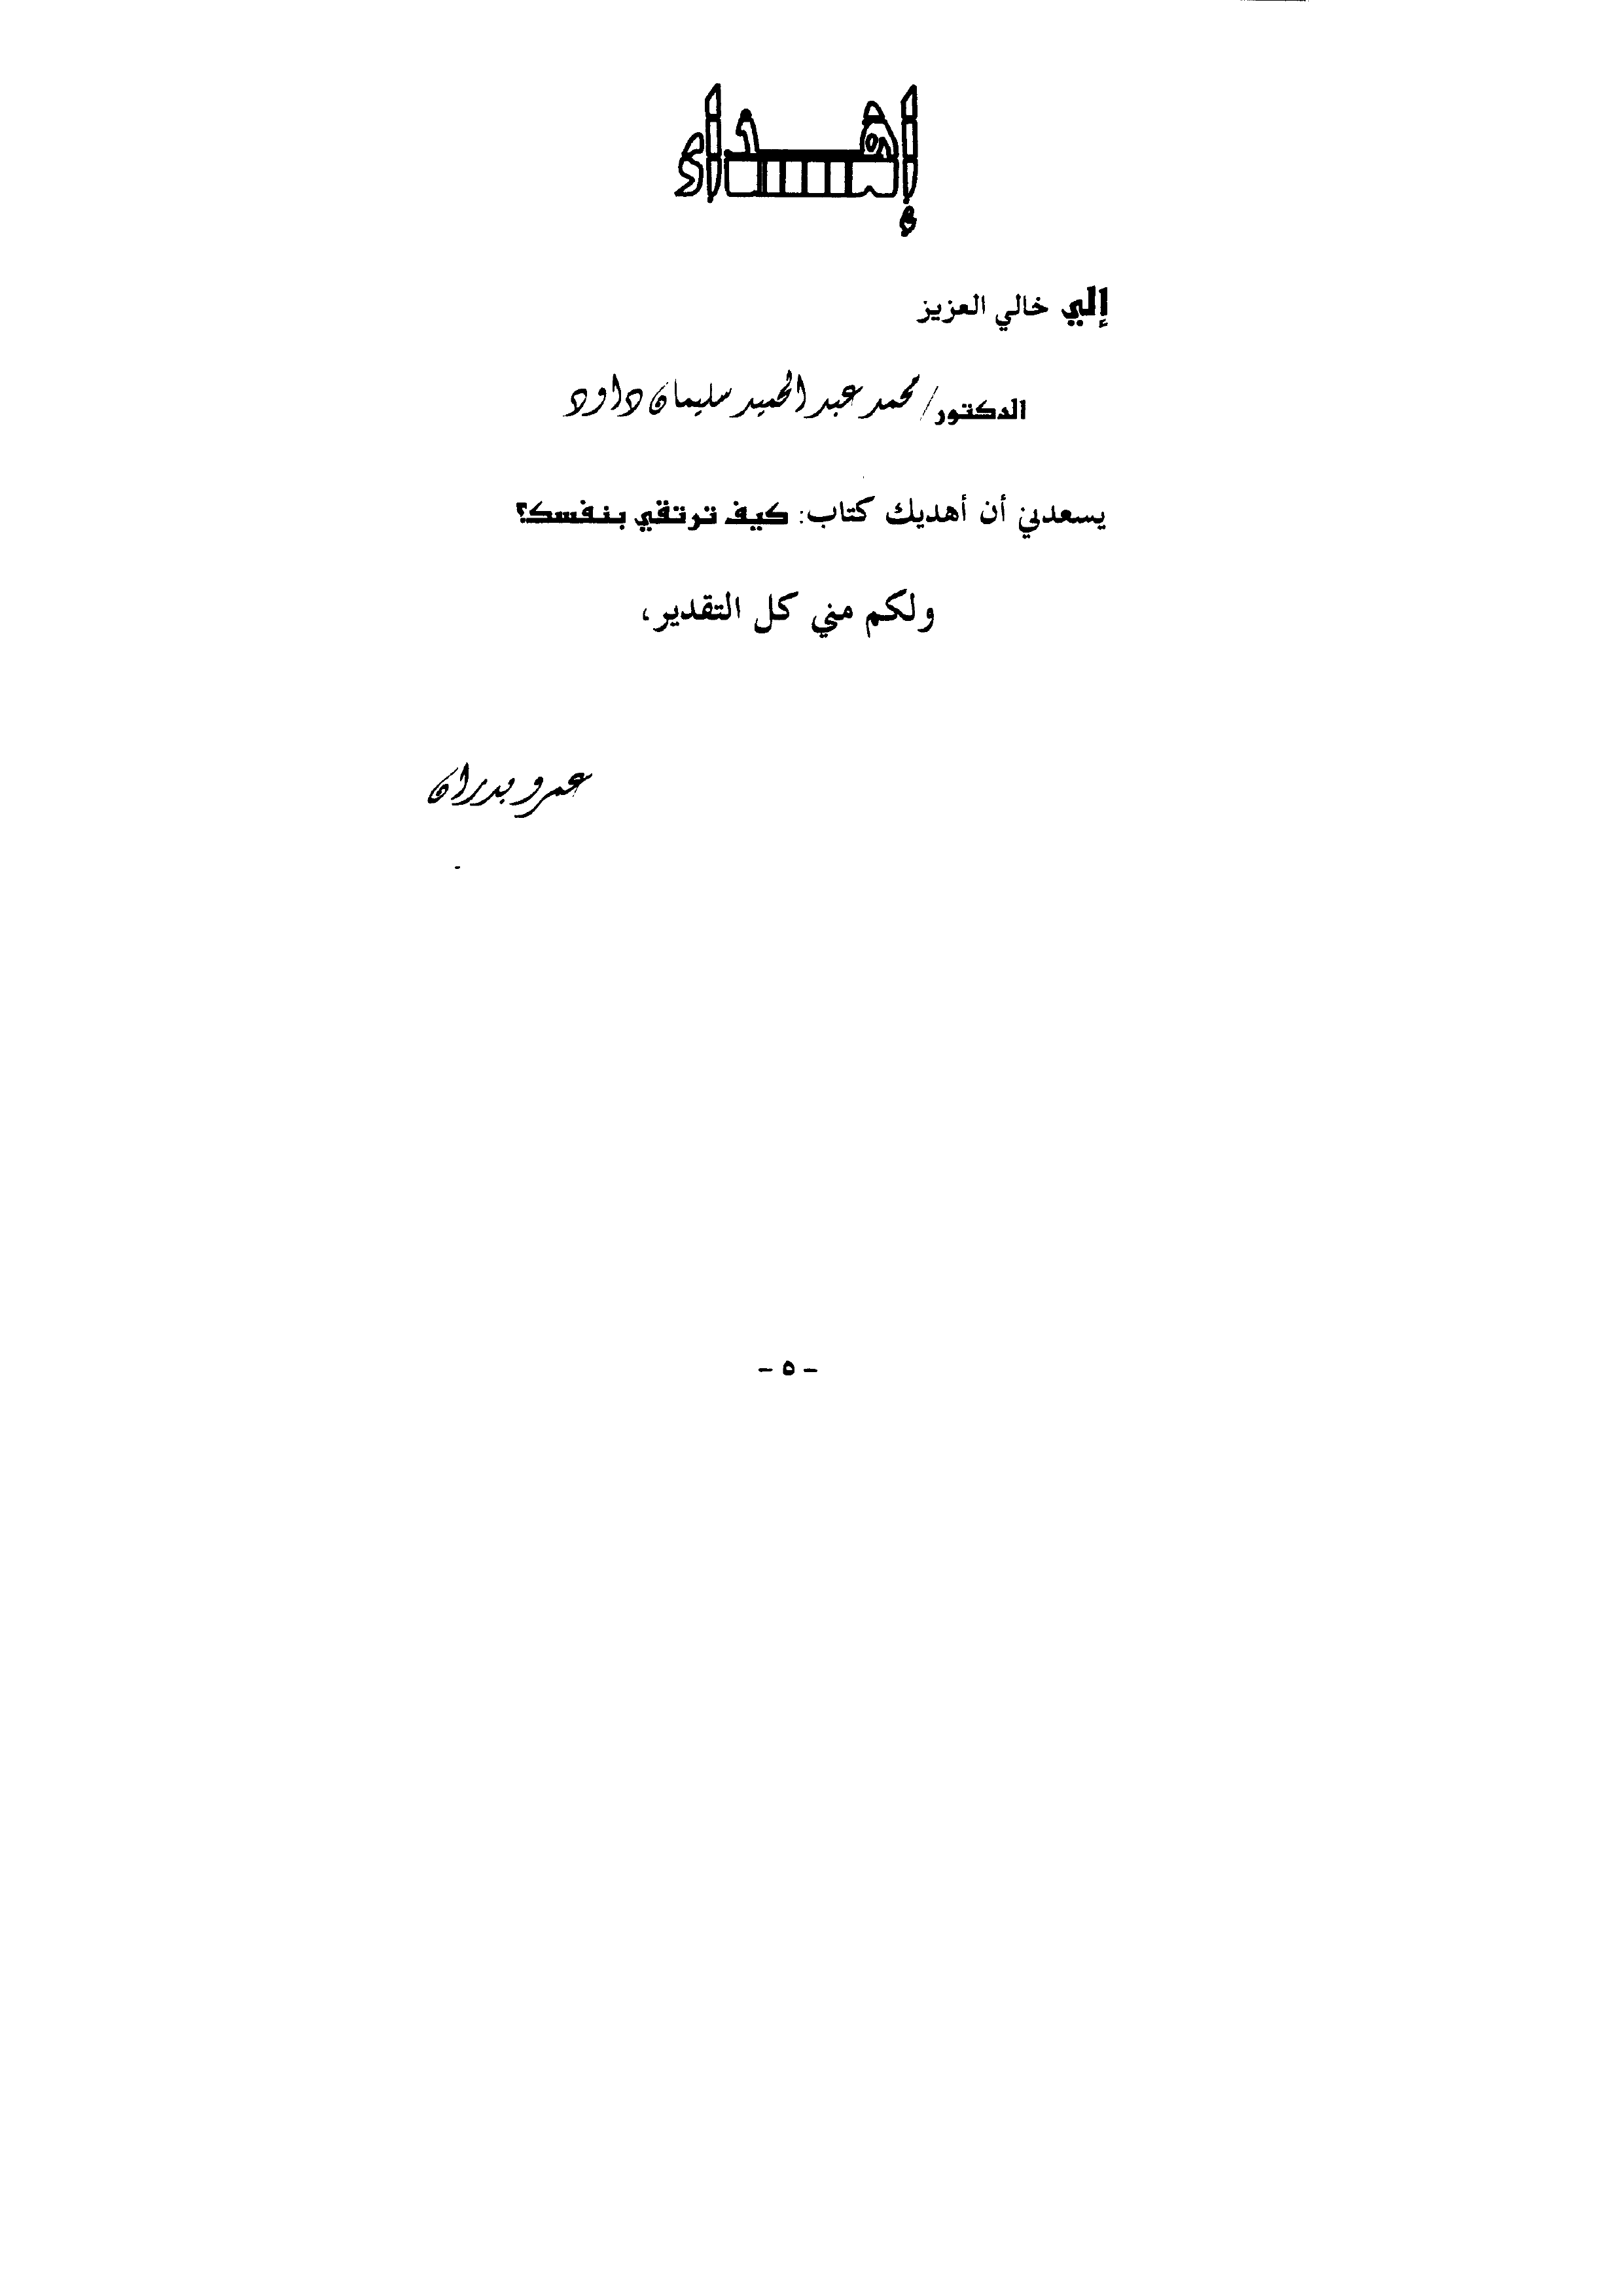 إهداء
إلي خالي العزيز
الدكتور/ محمد عبد الحميد سليمان داود
يسعدني أن أهديك كتاب: كيف ترتقي بنفسك؟
ولكم مني كل التقدير،
عمرو بدران
- ٥ -